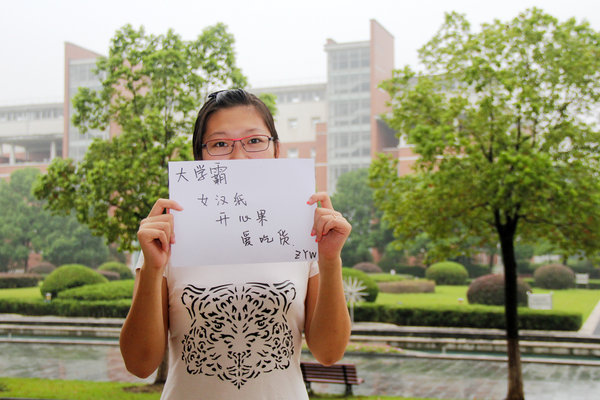 大学霸
女汉纸
开心果
爱吃货
ZYW